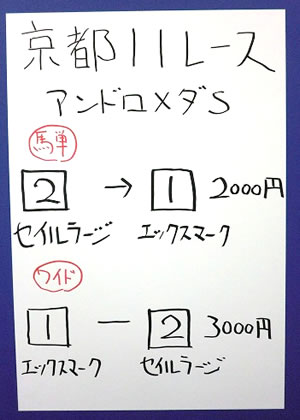 京都11レース
アンドロメダS
馬単
2 → 1 2000円
セイルラージ エックスマーク
ワイド
1 ー 2 3000円
エックスマーク セイルラージ